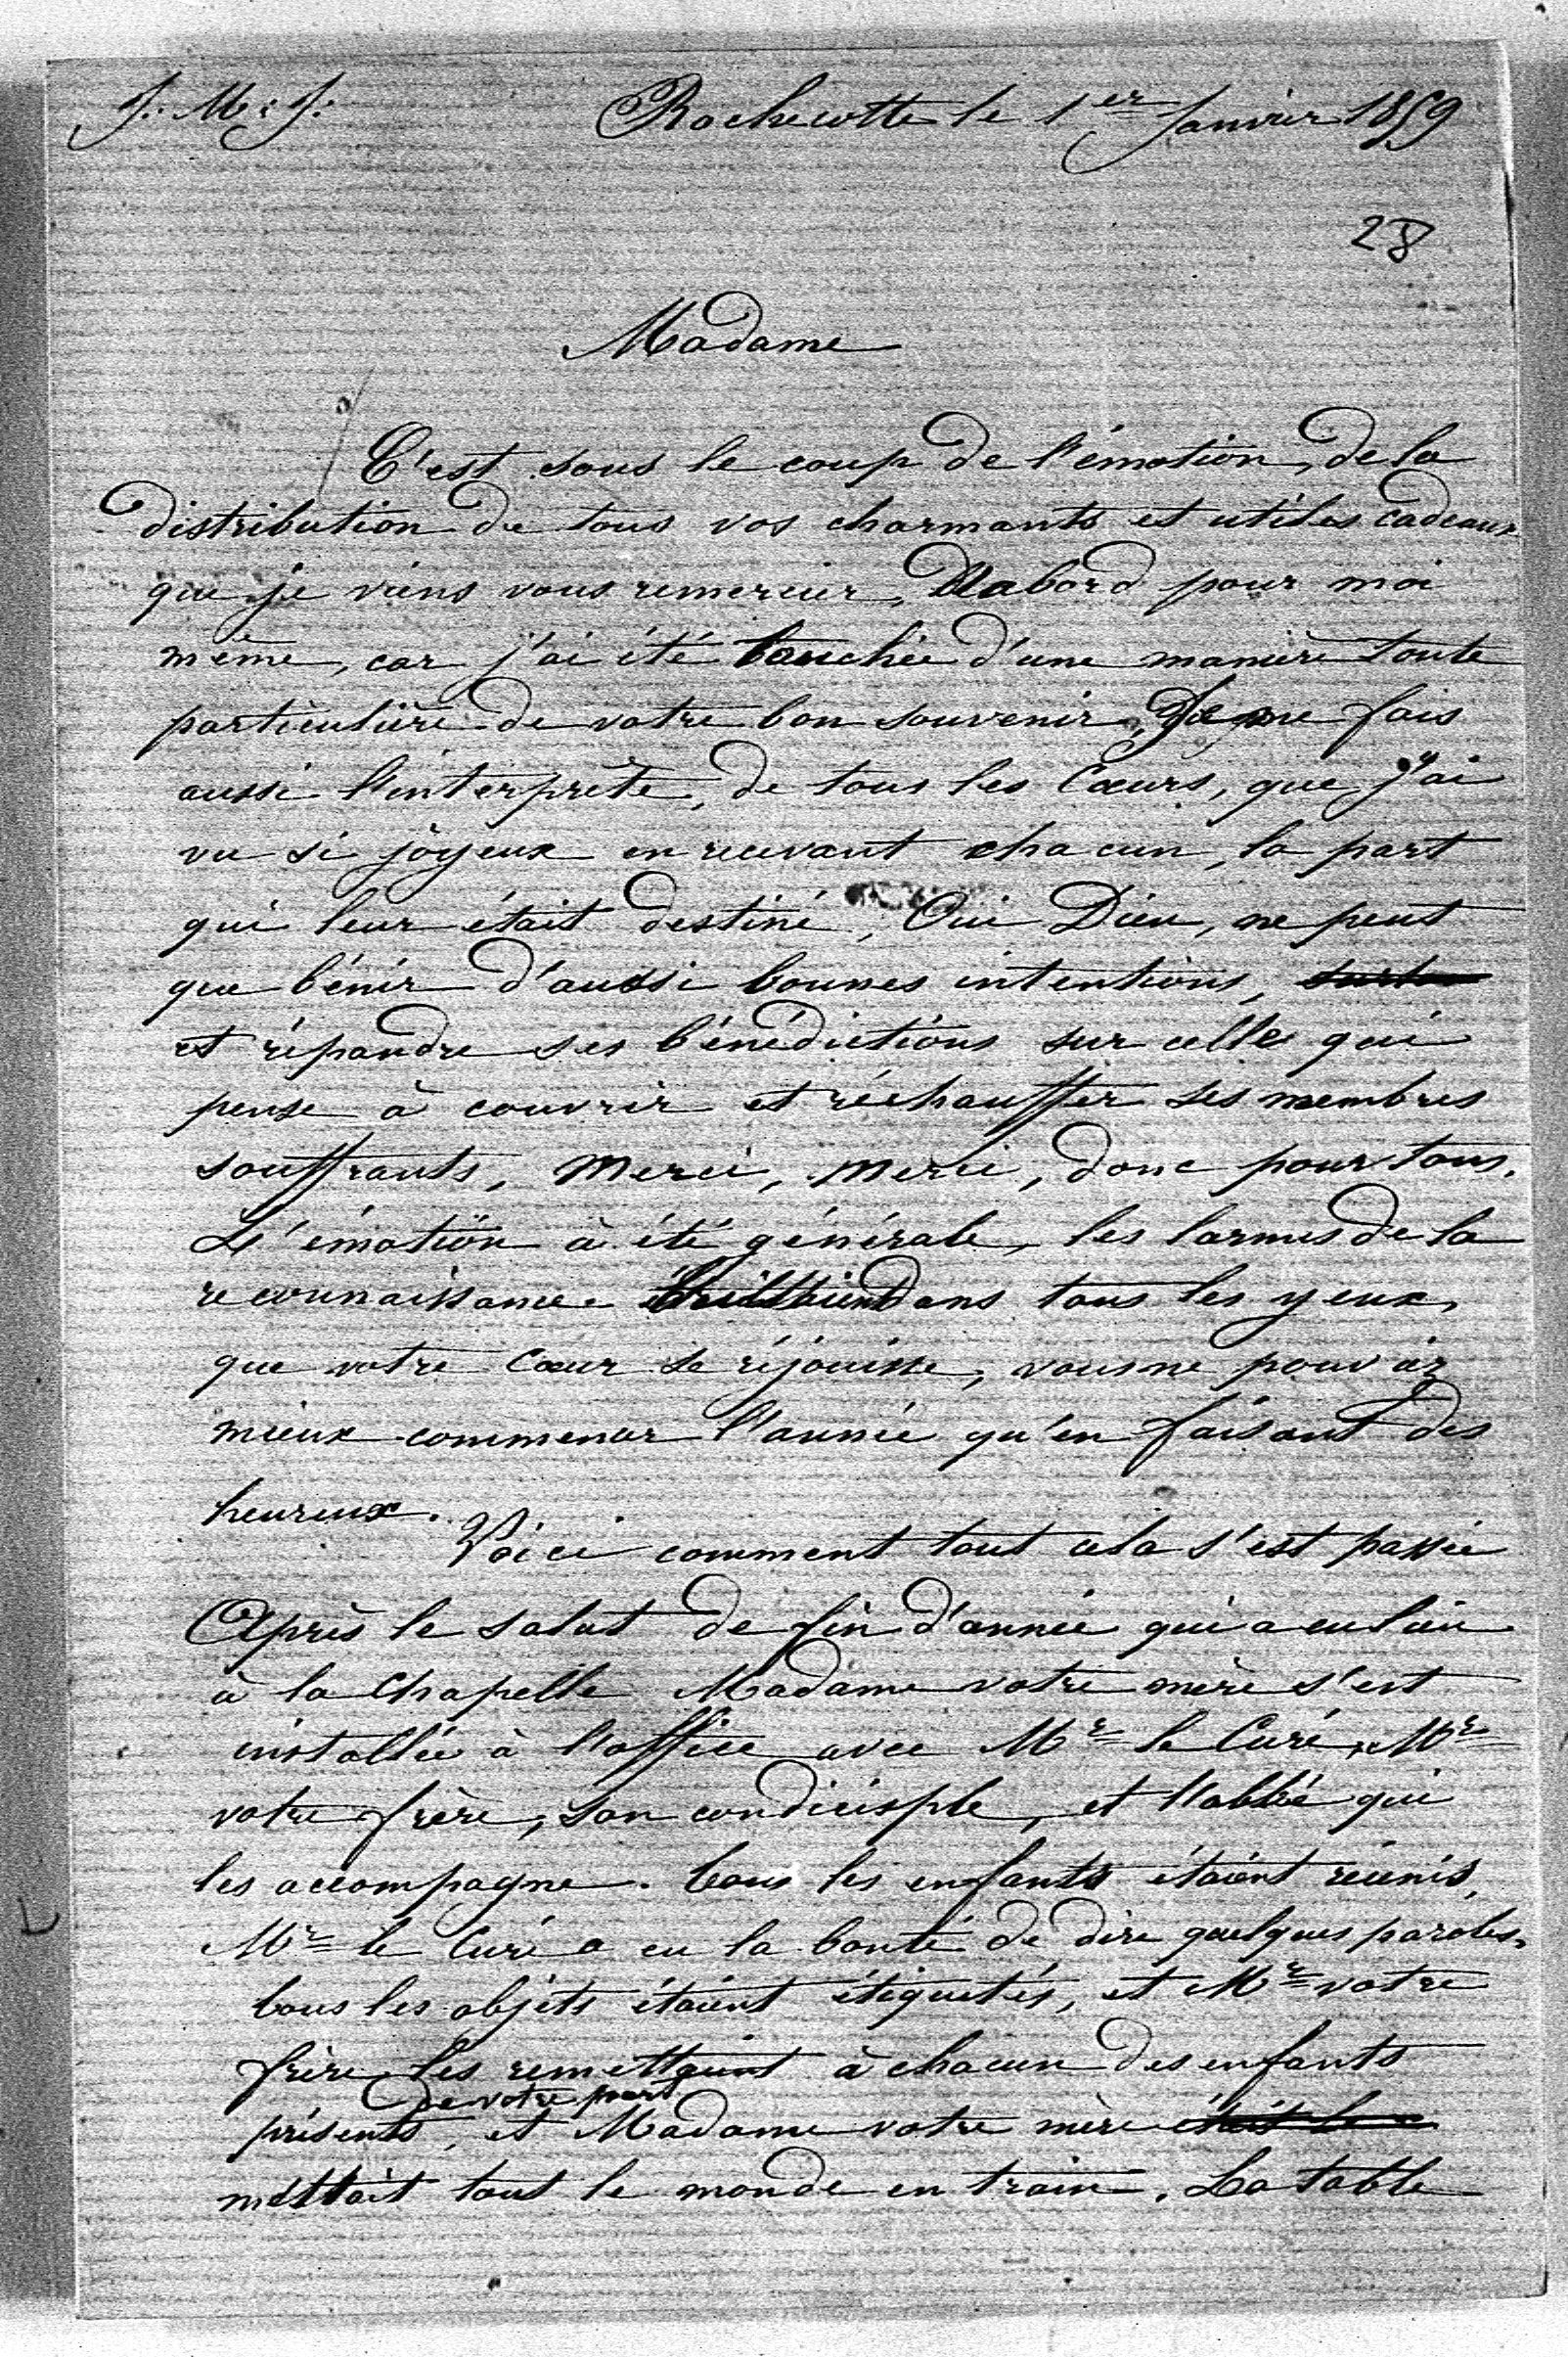 J. M. J.
Rochecotte le 1er Janvier 1859
28
Madame
C'est sous le coup de l'émotion, de la
distribution de tous vos charmants et utiles cadeaux
que je viens vous remercier, Dabord pour moi
même, car j'ai été touchée d'une manière toute
particulière de votre bon souvenir, Je me fais
aussi l'interprète, de tous les Cœurs, que j'ai
vu si joyeux en recevant chacun, la part
qui leur était destiné, Oui Dieu, ne peut
que bénir d'aussi bonnes intentions,
et répandre ses bénédictions sur celle qui
pense à couvrir et réchauffer ses membres
souffrants, Merci, merci, donc pour tous.
L'émotion à été générale, les larmes de la
reconnaissance dans tous les yeux,
que votre Cœur se réjouisse, vous ne pouviez
mieux commencer l'année qu'en faisant des
heureux.
Voici comment tout cela s'est passée
Après le salut de fin d'année qui a eu lieu
à la Chapelle Madame votre mère s'est
installée à l'office avec Mr le Curé, Mr
votre frère, son condicisple, et l'abbé qui
les accompagne. Tous les enfants étaient réunis,
Mr le Curé a eu la bonté de dire quelques paroles,
tous les objets étaient étiquetés, et Mr votre
frère les remettait à chacun des enfants
de votre part
présents, et Madame votre mère était
mettait tout le monde en train. La table